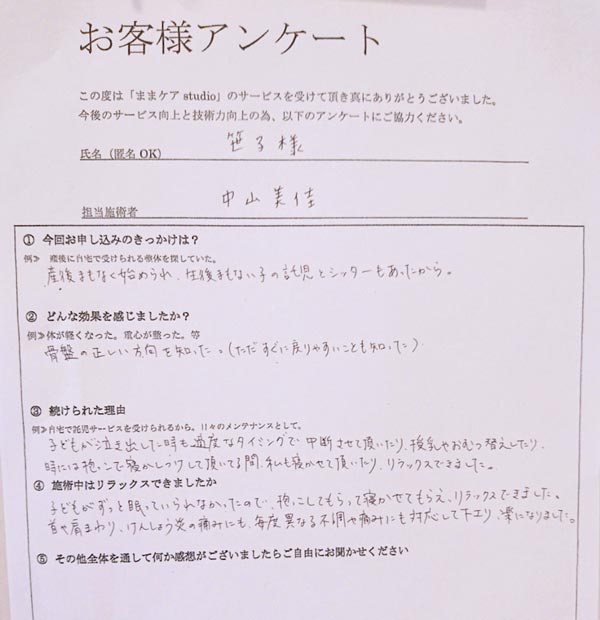 お客様アンケート
この度は「ままケア studio」のサービスを受けて頂き真にありがとうございました。
今後のサービス向上と技術力向上の為、以下のアンケートにご協力ください。
氏名（匿名 OK） 笹子様
担当施術者 中山美佳
① 今回お申し込みのきっかけは？
例≫ 産後に自宅で受けられる整体を探していた。
産後まもなく始められ、生後まもない子の託児とシッターもあったから。
② どんな効果を感じましたか？
例≫体が軽くなった。重心が整った。等
骨盤の正しい方向を知った。（ただすぐに戻りやすいことも知った）
③ 続けられた理由
例≫自宅で託児サービスを受けられるから。日々のメンテナンスとして。
子どもが泣き出した時も適度なタイミングで中断させて頂いたり、授乳やおむつ替えしたり、
時には抱っこで寝かしつけして頂いてる間、私も寝かせて頂いたり、リラックスできました。
④ 施術中はリラックスできましたか
子どもがずっと眠っていられなかったので、抱っこしてもらって寝かせてもらえ、リラックスできました。
首や肩まわり、けんしょう炎の痛みにも、毎度異なる不調や痛みにも対応して下さり、楽になりました。
⑤ その他全体を通して何か感想がございましたらご自由にお聞かせください